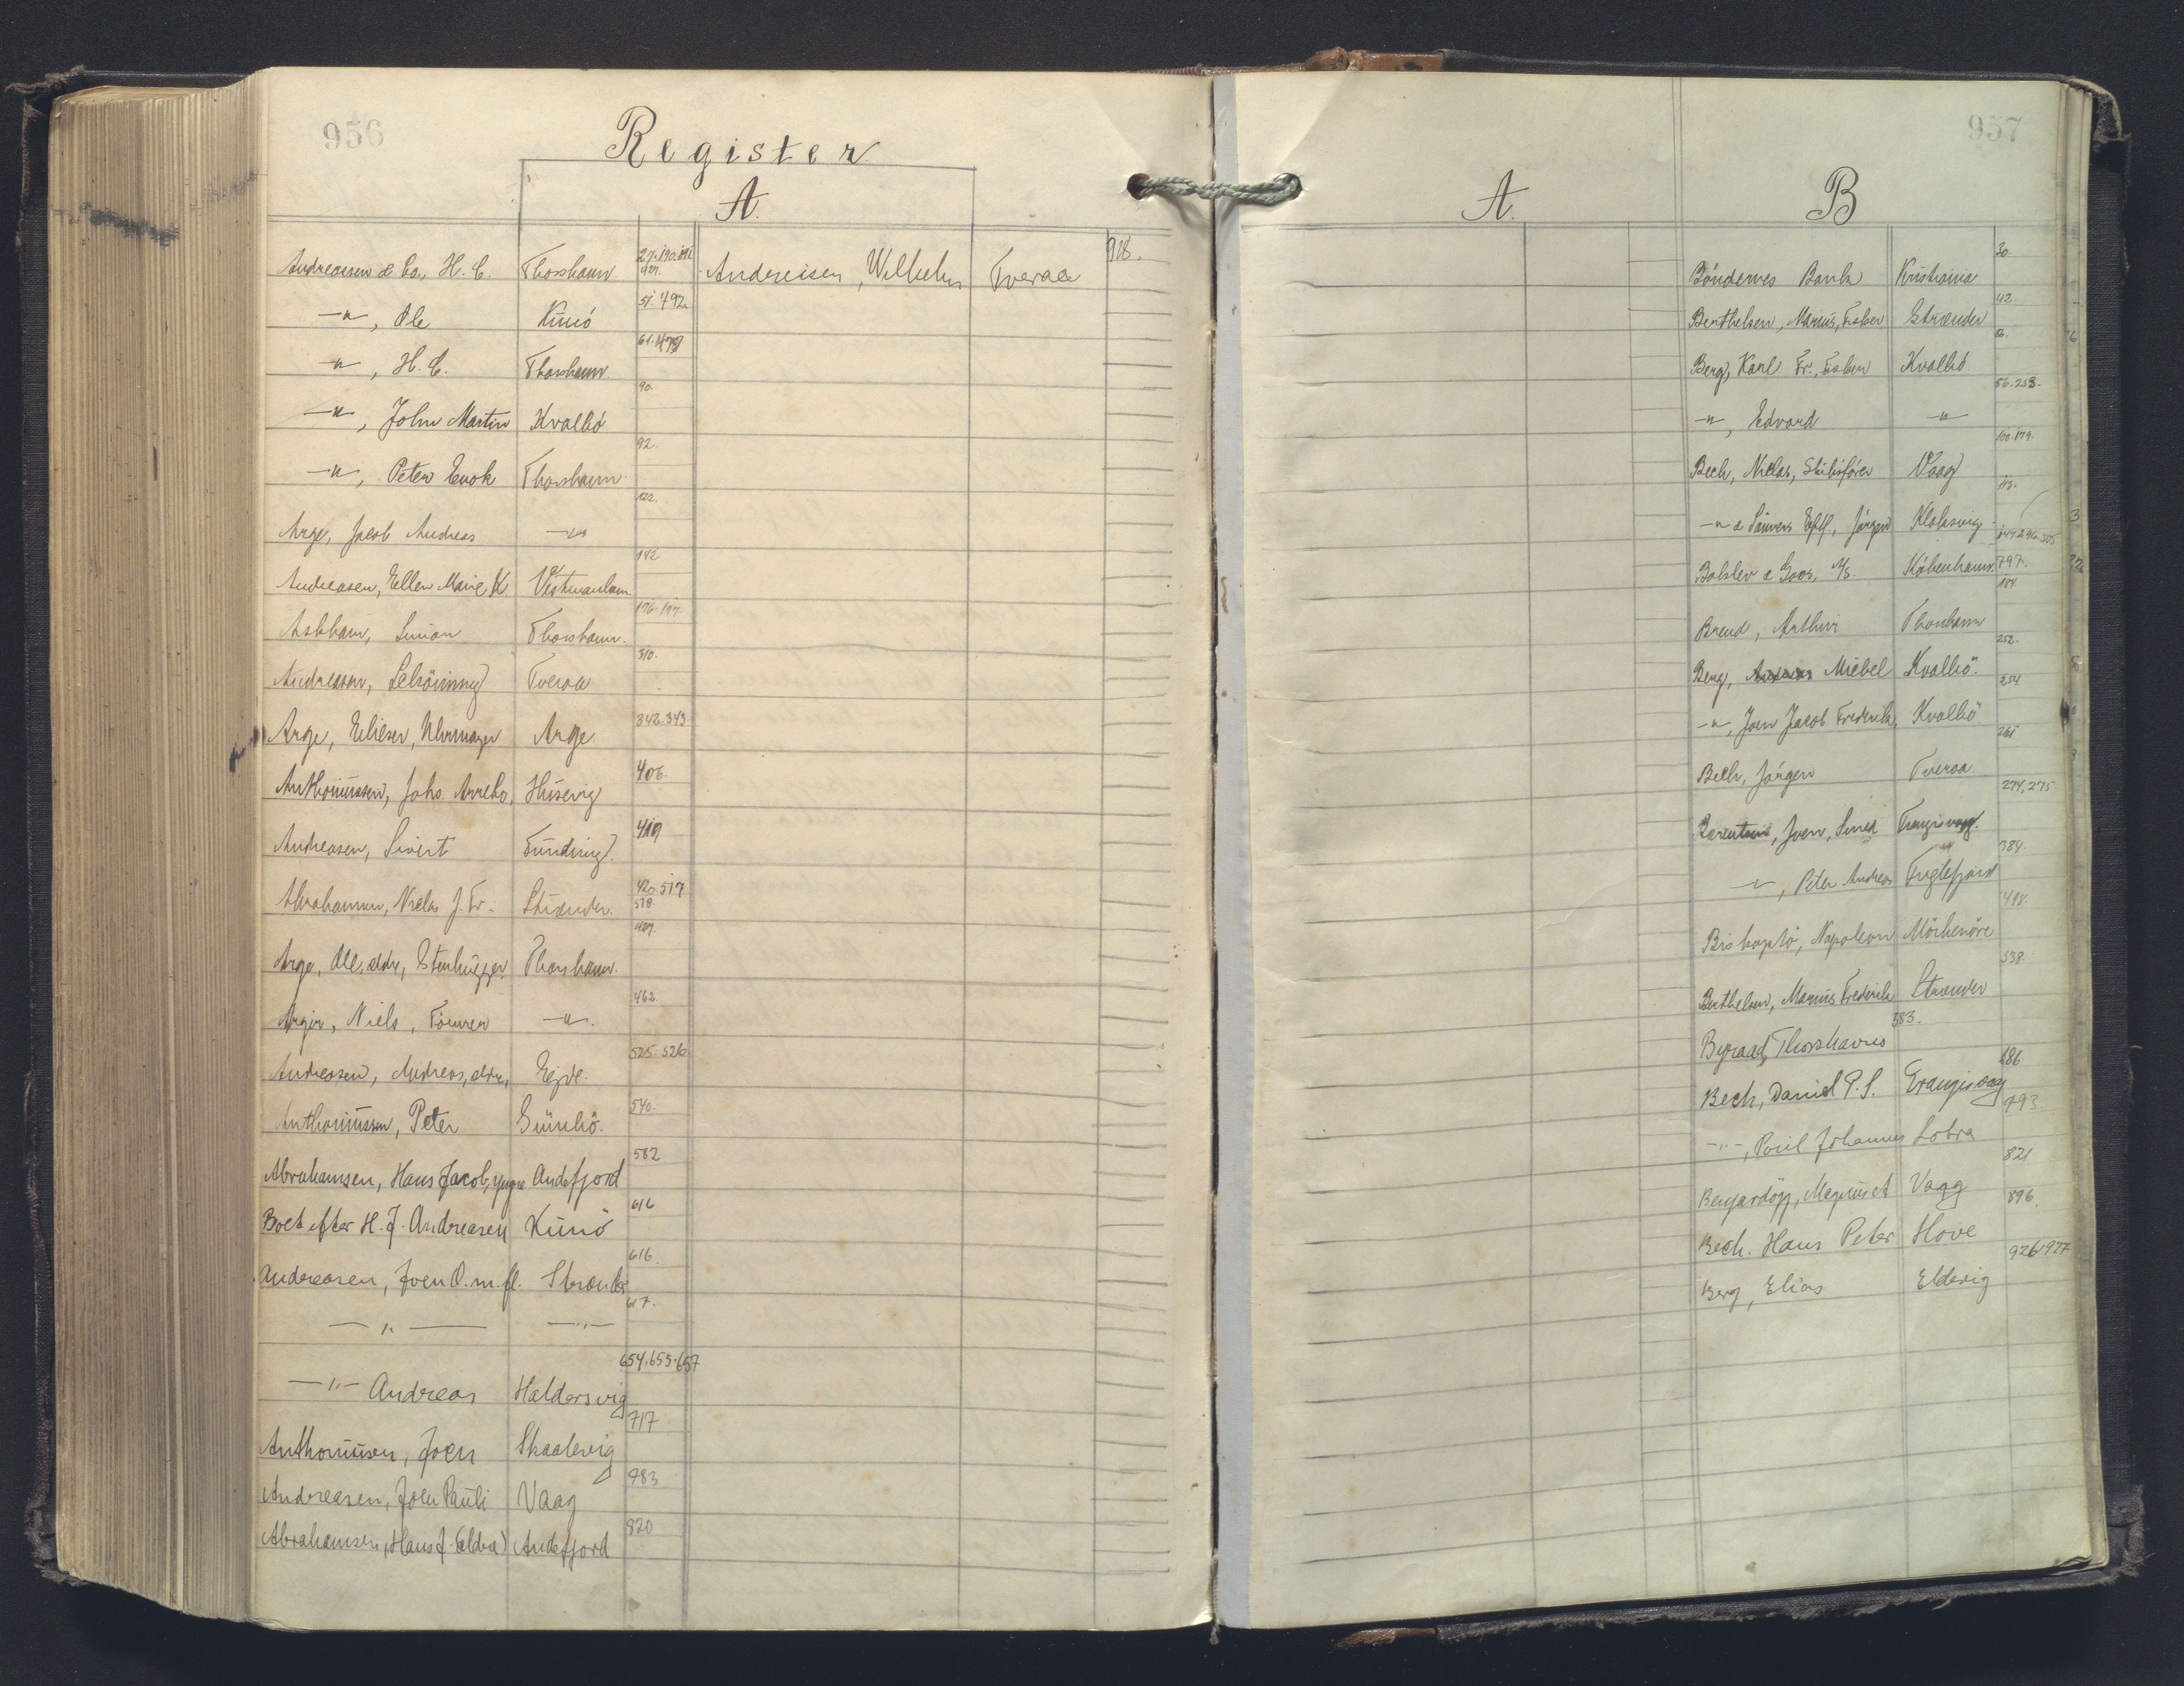 956
Register
A.
Andreasen & Co., H. C. Thorshavn 27.190.191
429.
-"-, Ole Kunö 51.492.
-"-, H. C. Thorshavn 61.479
-"-, John Martin Kvalbö 90.
-"-, Peter Enok Thorshavn 92.
Arge, Jacob Andreas -"- 122.
Andreasen, Ellen Marie K Vestmanhavn 142
Askham, Simon Thorshavn. 176.197.
Andreasen, Tveraa 310.
Arge, Elieser, Uhrmager Arge 342.343
Anthoniussen, Johs. Húsevig 406.
Andreasen, Sivert Funding 419
Abrahamsen, Niclas J. Fr. Strænder. 420.517
518.
Arge, Ole, ældre, Stenhugger, Thorshavn. 427.
Argir, Niels, -"-. 462.
Andreasen, Andreas, ældre, Ejde. 525.526
Anthoniussen, Peter 540.
Abrahamsen, Hans Jacob, yngre Andefjord 582
Boet efter H. J. Andreasen Kunö 616
Andreasen, Joen O. m. fl. Strænder 616.
-"- -"- 617.
-"- Andreas Haldersvig 654.655.657
Anthoniusen, Joen Skaalevig 717
Andreasen, Joen Pauli Vaag 783
Abrahamsen, Hans J. (ældre) Andefjord 820
Andreasen, Wilhelm Tveraa 918.
957
A.
B
Böndernes Bank Kristiania 30.
Berthelsen, Marius, Fisker Strænder 42.
Berg, Karl Fr., Fisker Kvalbö
-"-, Edvard -"- 56.253.
Bech, Niclas, Skibsförer Vaag 100.179.
-"- & Sönners Eftf., Jörgen Klaksvig 113.
Bolslev & Goos, A/S. Köbenhavn. 147.296.505
797.
Brend, Arthur Thorshavn 184.
Berg, Mickel Kvalbö. 252.
-"-, Joen Jacob Frederik, Kvalbö 254
Bech, Jörgen Tveraa 261
Berentsen, Joen, Smed Trangisvaag. 274,275
-"-, Peter Andreas Fuglefjord 389.
Biskoptö, Napoleon Mörkenöre 498.
Berthelsen, Marius Frederik Strænder 538.
Byraad, Thorshavns 583.
Bech, Daniel P. S. Trangisvaag 686
-"-, Poul Johannes Lobra 793
Bengardögg, Magnus et Vaag 821
Bech. Hans Peter Hove 896.
Berg, Elias Eldevig 926,927